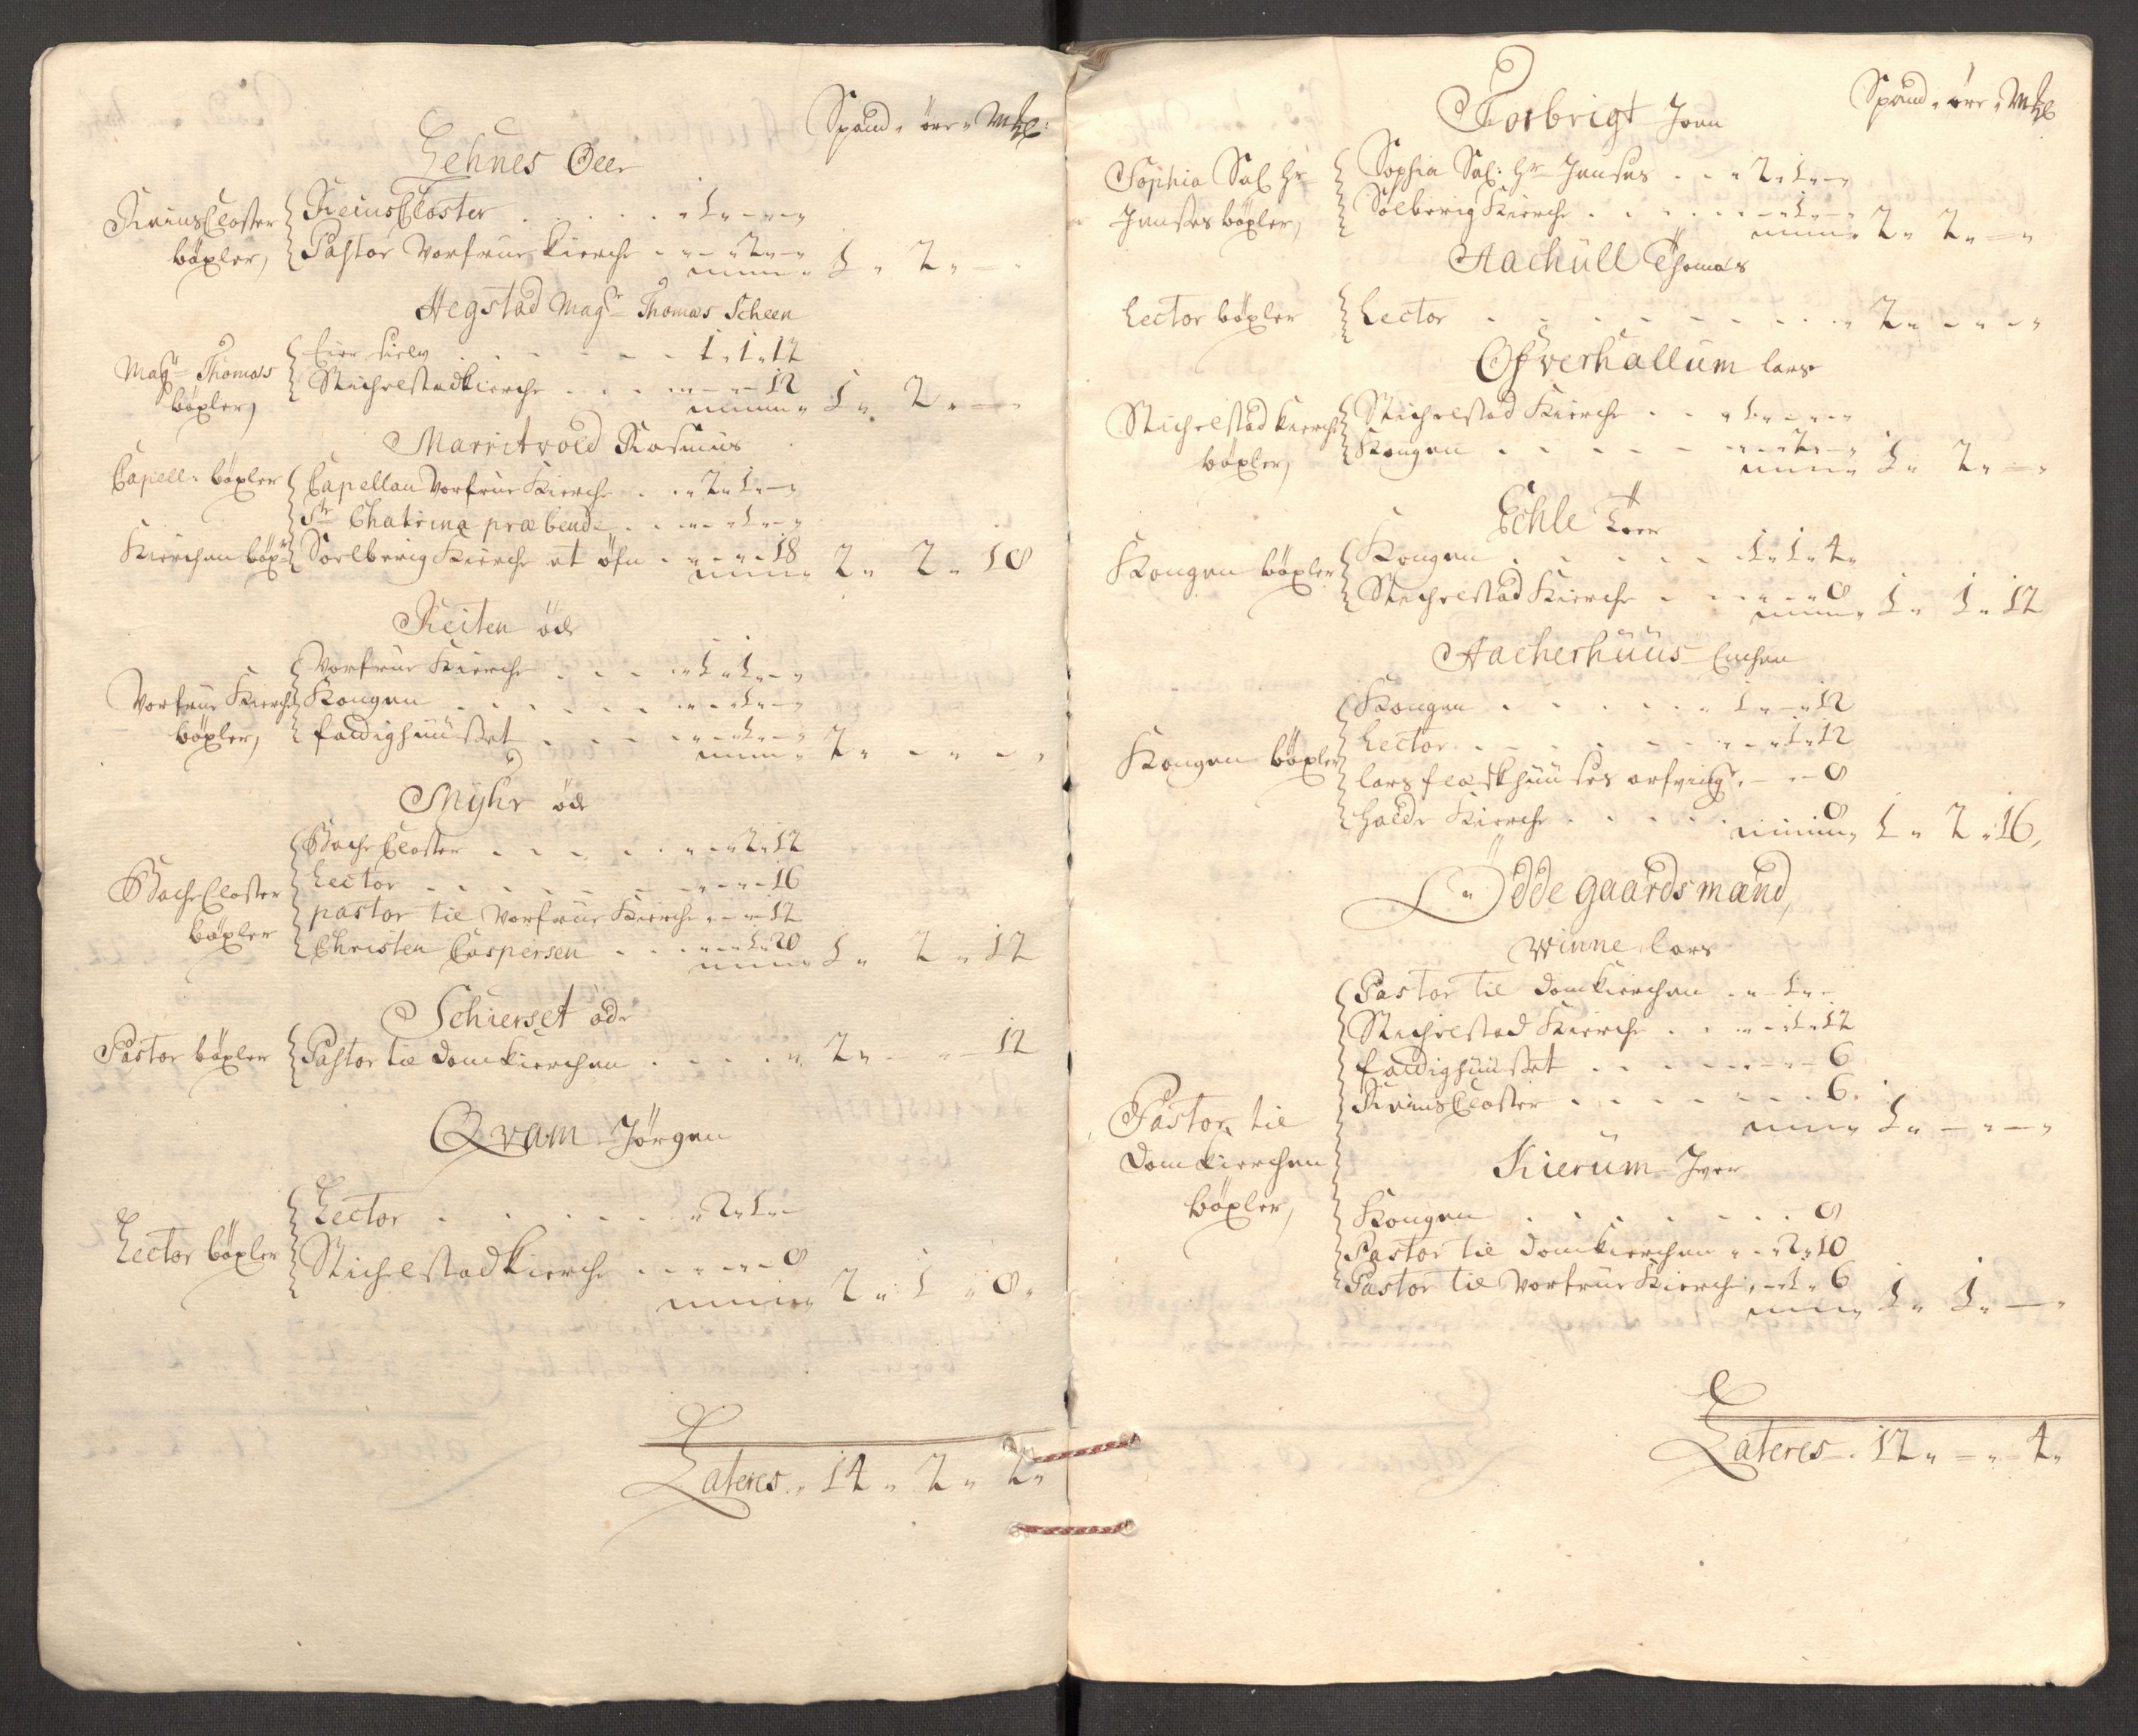 Spand " öre " Mkl:
Lehnes Oler
ReinsCloster
böxler,
ReinsCloster . . . . . " 1 " - " - "
Pastor Vorfrue kierche . " - " 2 " - "
1 " 2 " -
Hegstad Magr Thomas Scheen
Magr Thomas
böxler,
Eier sielv . . . . . 1 " 1 " 12
Stichelstadkierche . . . " - " - " 12
1 " 2 " -
Marritvold Rasmus
Capell: böxler
Capellan Vorfrue Kierche . . " 2 " 1 " - "
St Chatrina præbende . . " - " 1 " - "
Kierchen böxr
Soelberig Kierche et öfn . " - " - " 18
2 " 2 " 18
Reiten öde
Vorfrue Kierche
böxler,
Vorfrue Kierche . . . . " 1 " 1 " - "
Kongen . . . . . . " - " 1 " - "
fattighuusset . . . . " - " 1 " - "
2 " - " - "
Myhr öde
BacheCloster
böxler
BacheCloster . . . . . " - " 2 " 12
Lector . . . . . . " - " - " 16
pastor til Vorfrue Kierche " - " - 12
Christen Caspersen . . . " - " 1 " 20
1 " 2 " 12
Schierset öde
Pastor böxler
Pastor til Domkierchen . . . . " 2 " - " - 12
Qvam Jörgen
Lector böxler
Lector . . . . . " 2 " 1 " -
Stichelstadkierche . . " - " - 8
2 " 1 " 8 "
Lateres . 14 " 2 " 2 "
Spand " öre " Mkl
Torbrigt Joen
Sophia Sal Hr
Jenses böxler,
Sophia Sal: Hr Jenses . . " 2 " 1 " - "
Solberig Kierche . . . . " - " 1 " - "
2 " 2 " - "
Aachüll Thomas
Lector böxler
Lector . . . . . . . . " 2 " - " - "
Ofverhallum lars
Stichelstad kierche
böxler,
Stichelstad Kierche . . " 1 " - " - "
Kongen . . . . . " - " 2 " - "
1 " 2 " - "
Echle Toer
Kongen böxler
Kongen . . . . . . 1 " 1 " 4 "
Stichelstad Kierche . . " - " - " 8
1 " 1 " 12
Aacherhuus Enchen
Kongen böxler
Kongen . . . . . . " 1 " - " 12
Lector . . . . . . " - " 1 " 12
lars flæskhuuses arfving " - " - 8
Halde Kierche . . . . . 8
1 " 2 " 16,
Ödde gaards mænd,
Winne lars
Pastor til
Domkierchen
böxler,
Pastor til Domkierchen . " - 1 " -
Stichelstad Kierche . . " - " 1 " 12
fattighuusset . . . . " - " - " 6
ReinsCloster . . . . . . . 6 .
1 " - " - "
Kierum Iver
Kongen . . . . . . . 8
Pastor til Domkierchen " - " 2 " 10
Pastor til Vorfrue Kierche " - 1 " 6
1 " 1 " - "
Lateres . 12 " - " 4 "